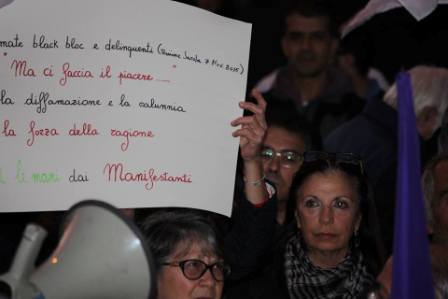 mate black bloc e delinquenti (
"Ma ci faccia il piacere ...."
la diffamazione e la calunnia
la forza della ragione
le mani dai Manifestanti